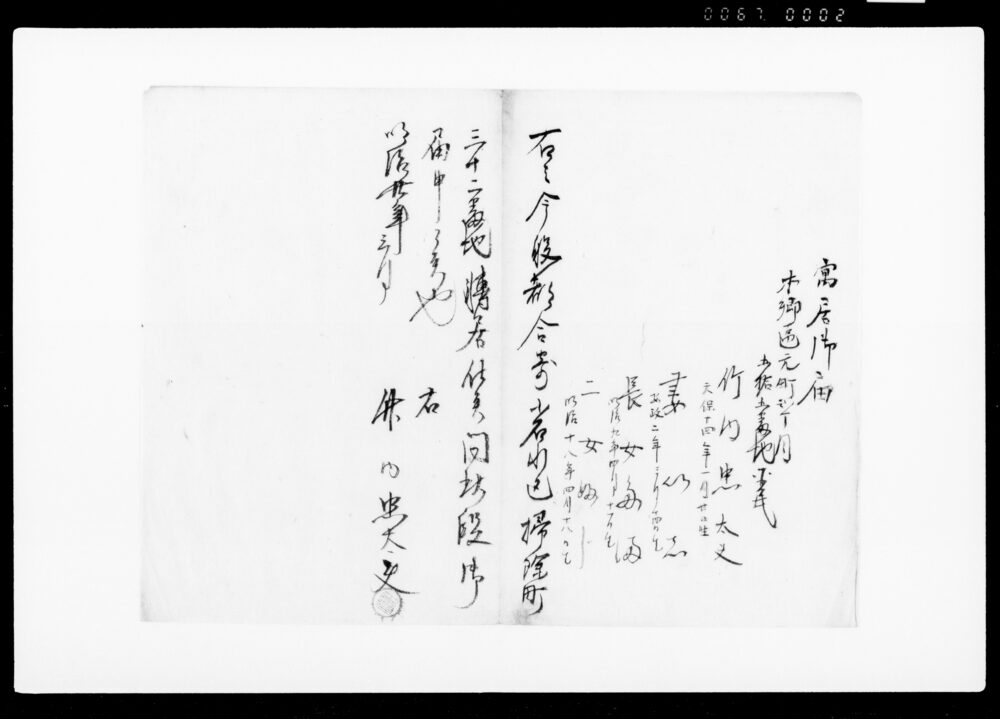 0067. 0002
寓居御届
本郷区元町弐丁目
五拾五番地 平民
竹内忠太夫
天保十四年一月廿日生
妻 
安政二年三月十四日生
長女
明治九年四月十一日生
二女
明治十八年四月十八日生
右之今般都合ニ寄小石川区掃除町
三十二番地轉居仕候間此段御
届申上候也
明治廿年三月
右
竹内忠太夫